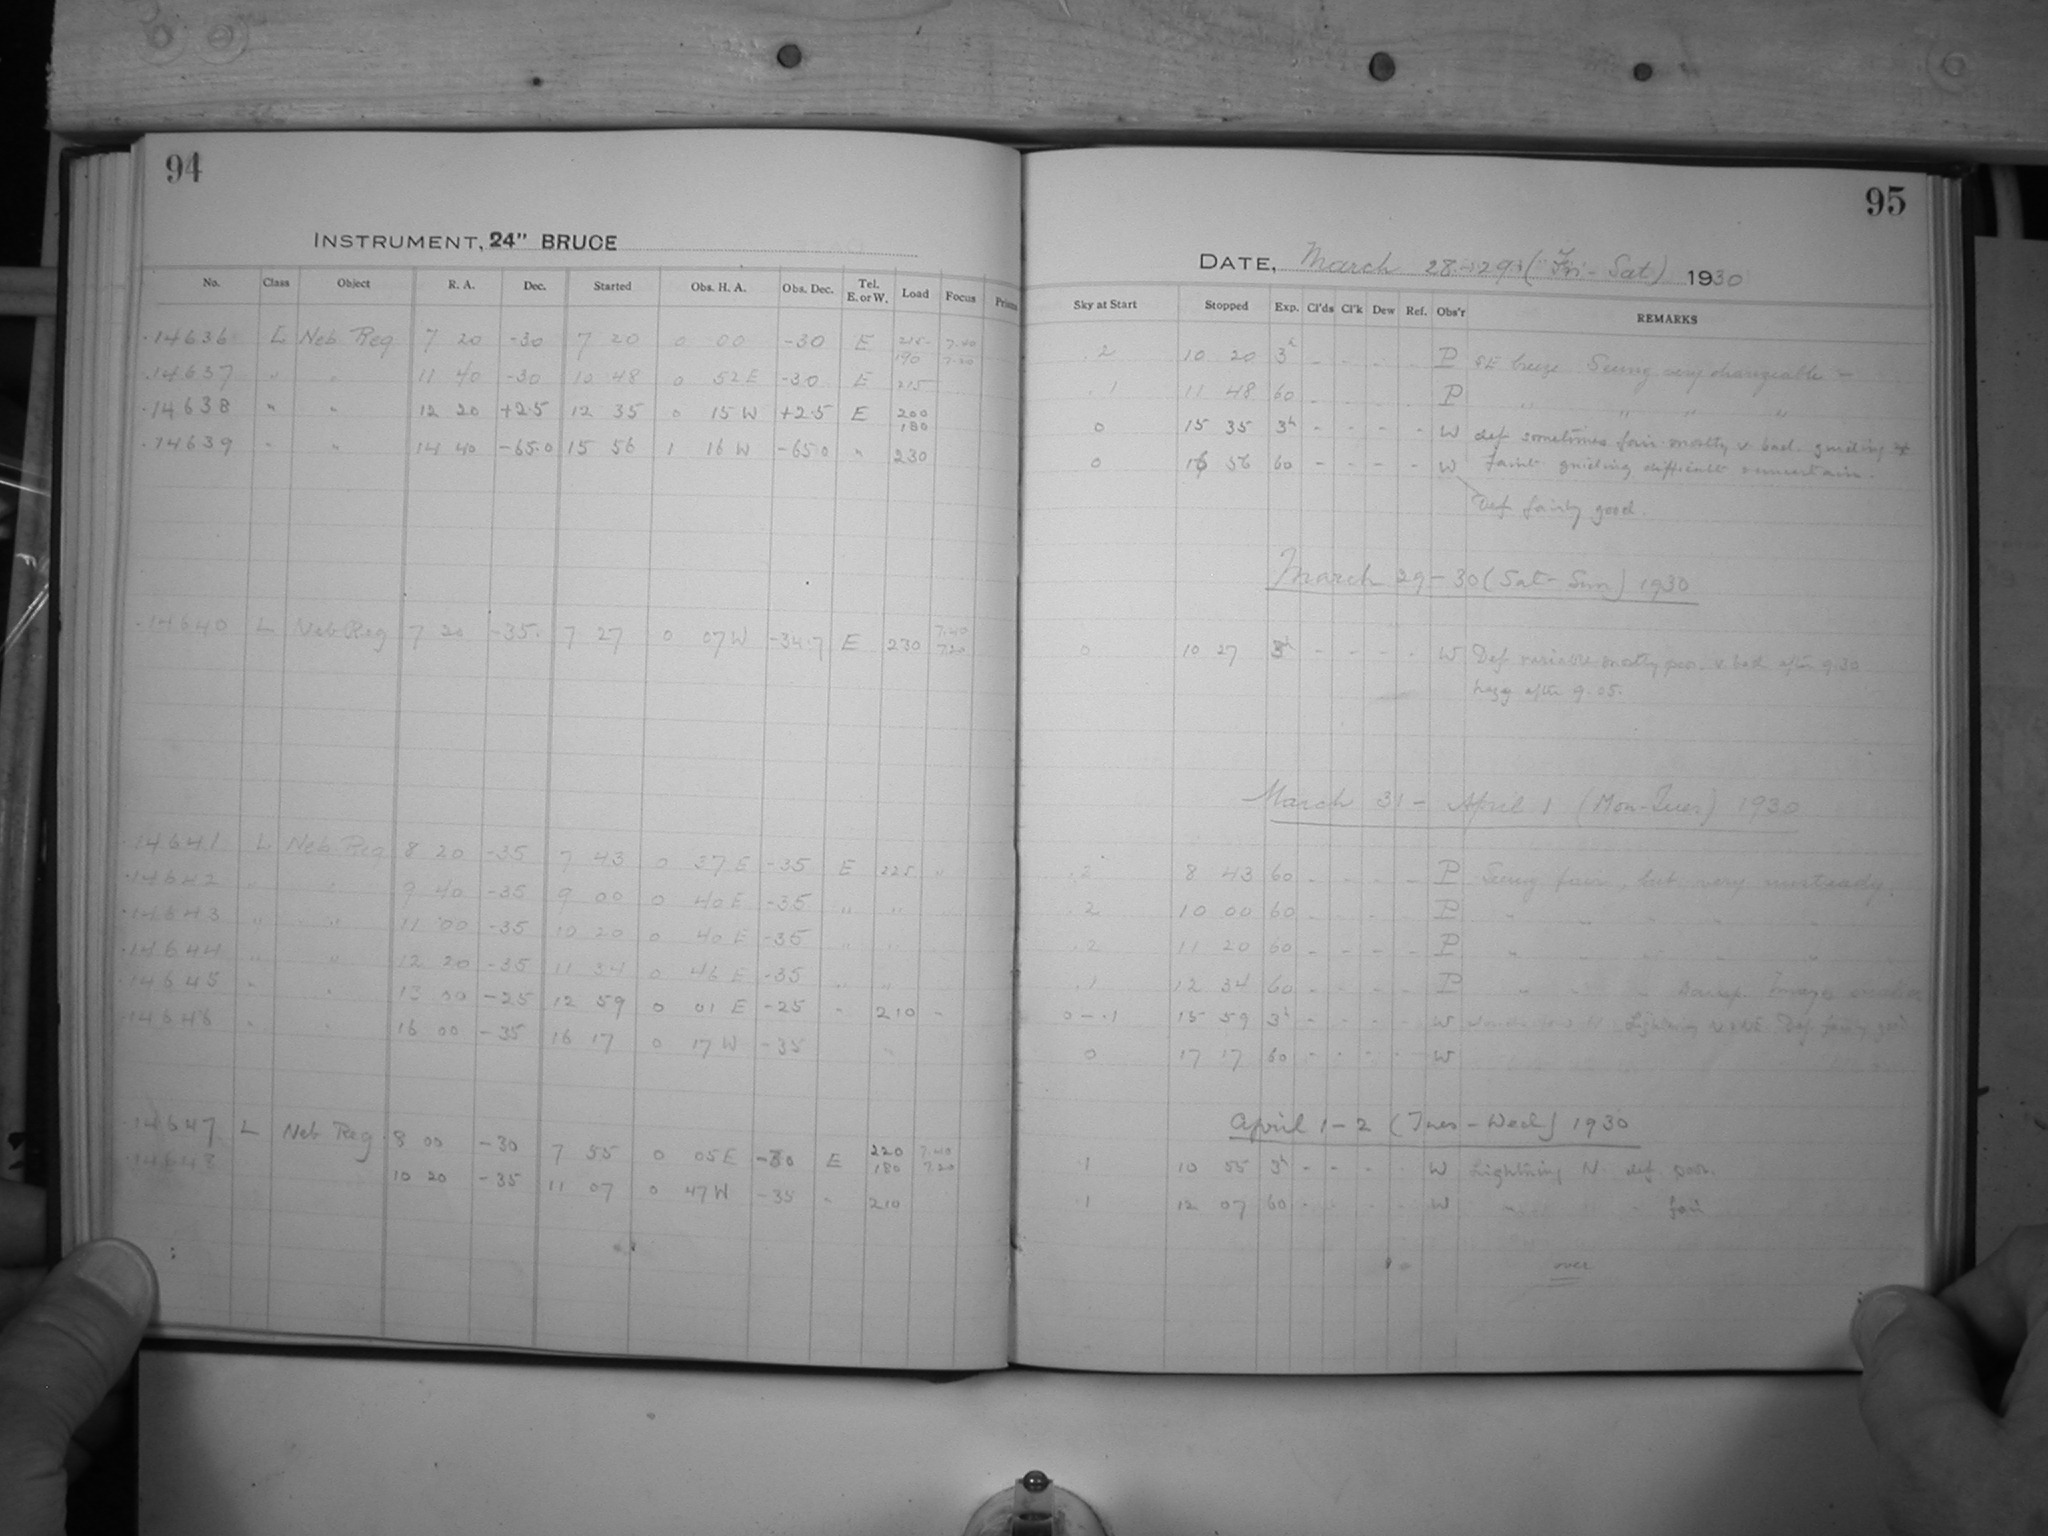 94
INSTRUMENT, 24" BRUCE
No. Class Object R. A. Dec. Started Obs. H. A. Obs. Dec. Tel. E. or W. Load Focus
14636 L Neb Reg 7 20 -30 7 20 0 00 -30 E 215 7.40
190 7.20
14637 " " 11 40 -30 10 48 0 52 E -30 E 215
14638 " " 12 20 +2.5 12 35 0 15 W +2.5 E 200
180
14639 " " 14 40 -65.0 15 56 1 16 W -65 0 " 230
14640 L Neb Reg 7 20 -35. 7 27 0 07 W -34.7 E 230 7.40
7.20
14641 L Neb Reg 8 20 -35 7 43 0 37 E -35 E 225 "
14642 " " 9 40 -35 9 00 0 40 E -35 " "
14643 " " 11 00 -35 10 20 0 40 E -35 " "
14644 " " 12 20 -35 11 34 0 46 E -35 " "
14645 " " 13 00 -25 12 59 0 01 E -25 " 210 "
14646 " " 16 00 -35 16 17 0 17 W -35 "
14647 L Neb Reg 8 00 -30 7 55 0 05 E -30 E 220 7.40
180 7.20
14648 10 20 -35 11 07 0 47 W -35 " 210
95
DATE, March 28-29 (Fri - Sat) 1930
Sky at Start Stopped Exp. Cl'ds Cl'k Dew Ref. Obs'r REMARKS
.2 10 20 3h - - - - P SE breeze. Seeing very changeable -
.1 11 48 60 - - - - P " " " "
0 15 35 3h - - - - W def sometimes fair mostly v bad. guiding
0 16 56 60 - - - - W faint guiding difficult & uncertain.
Def fairly good.
March 29-30 (Sat-Sun) 1930
0 10 27 3h - - - - W Def variable mostly poor. v. bad after 9.30
hazy after 9.05.
March 31 - April 1 (Mon-Tues) 1930
.2 8 43 60 - - - - P Seeing fair, but very unsteady.
.2 10 00 60 - - - - P " " " "
.2 11 20 60 - - - - P " " " "
.1 12 34 60 - - - - P " " "
0-.1 15 59 3h - - - - W Lightning N & NE. Def fairly good
0 17 17 60 - - - - W
April 1-2 (Tues-Wed) 1930
.1 10 55 3h - - - - W Lightning N. def. poor.
.1 12 07 60 - - - - W " " fair
over